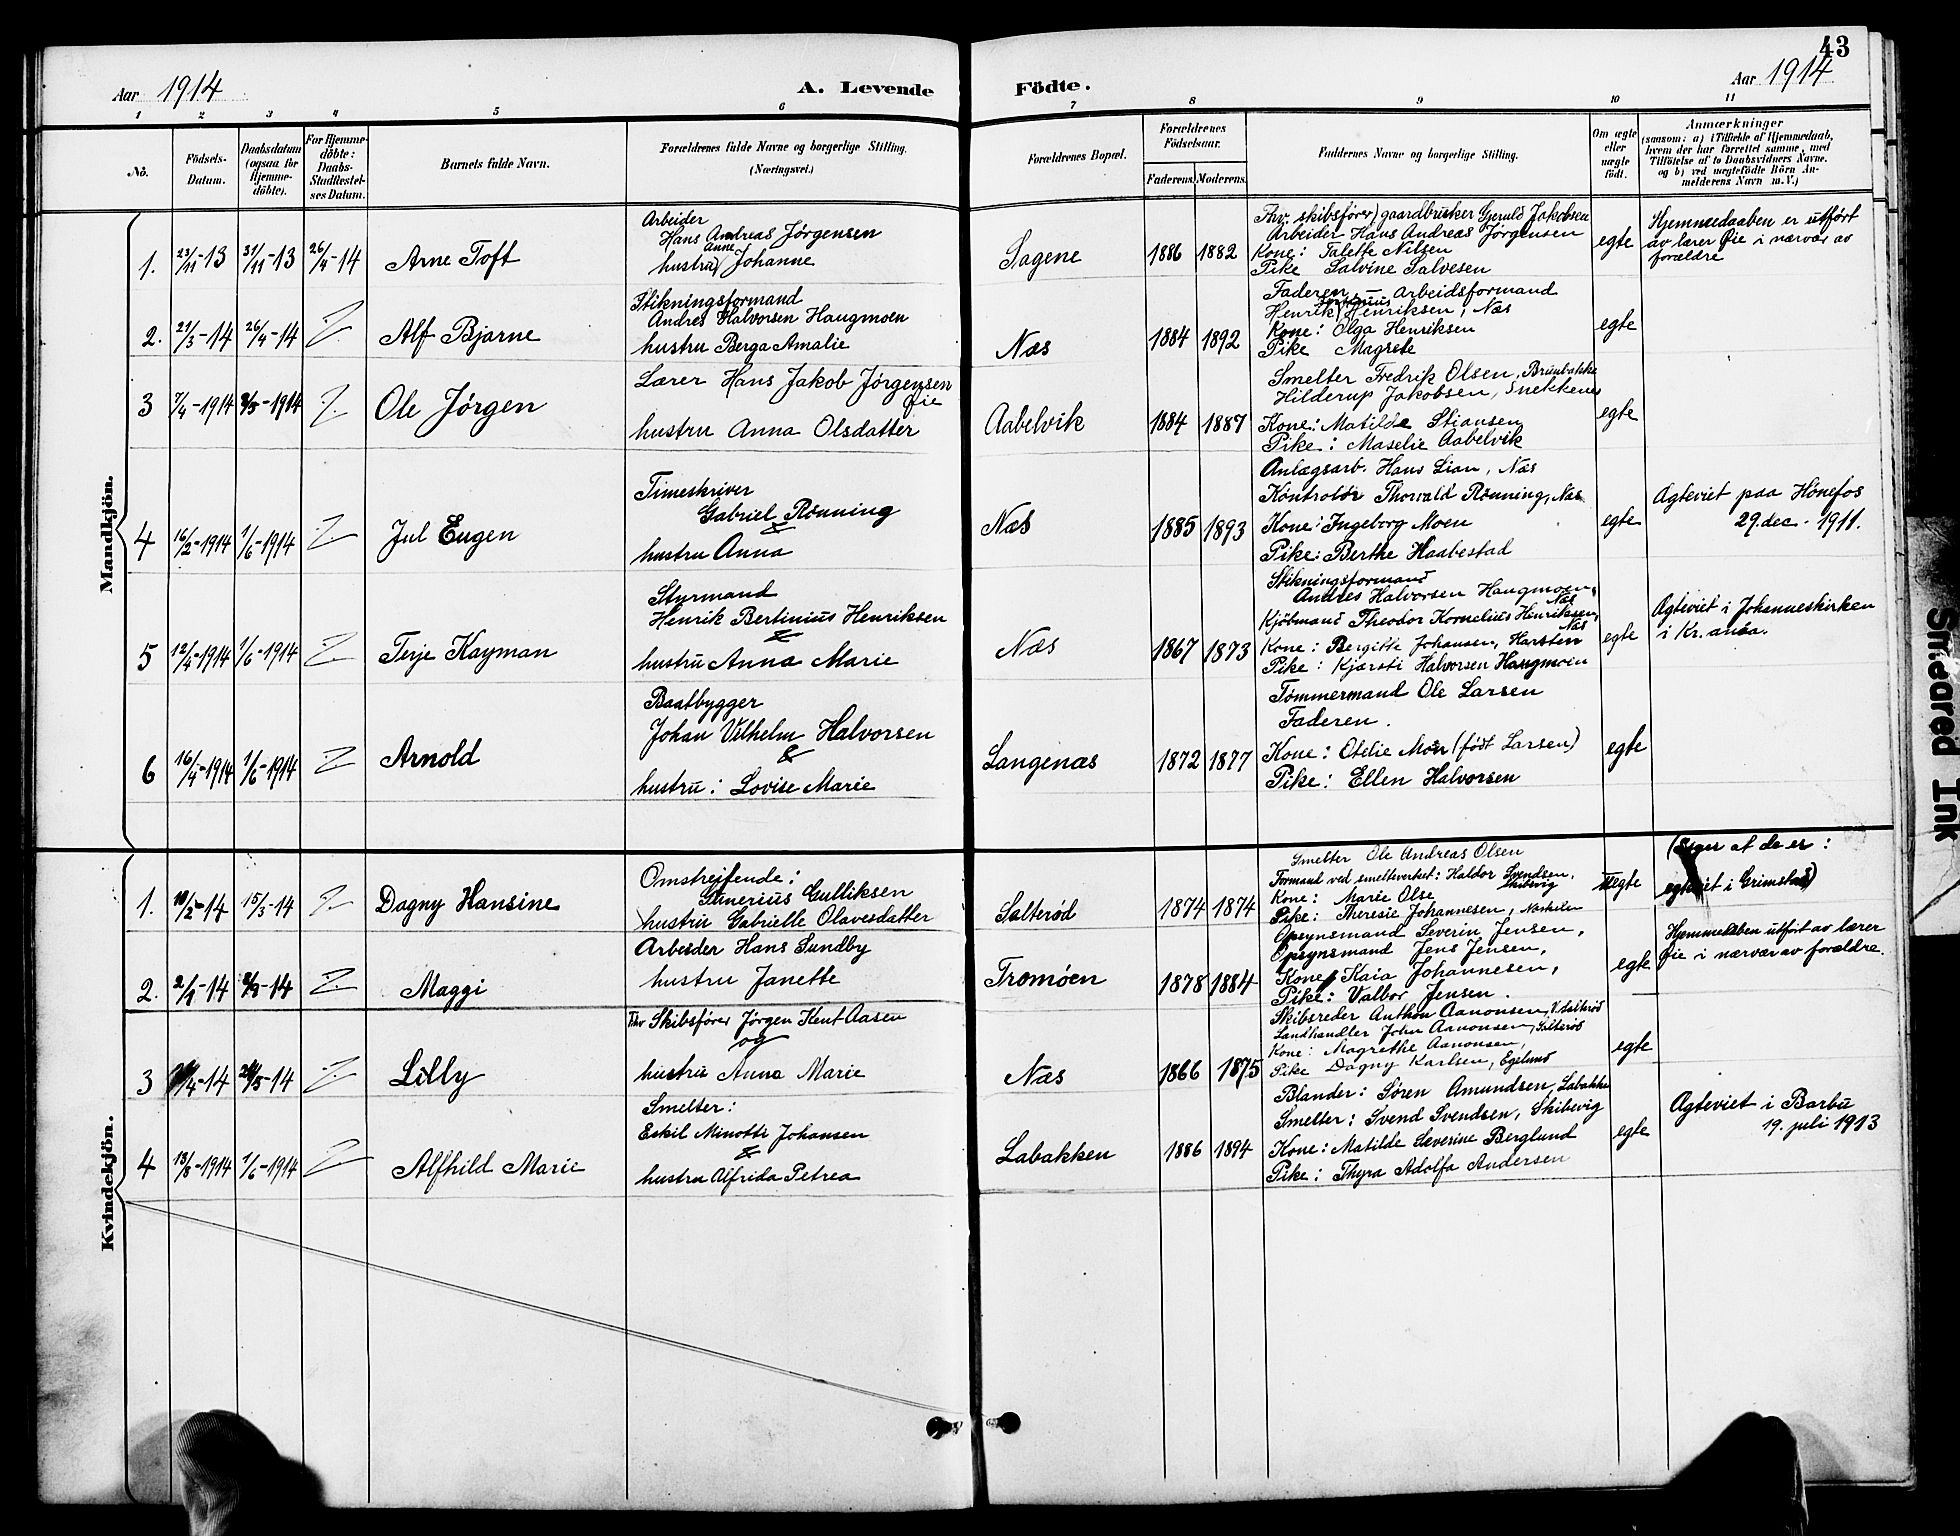 43
Aar 1914
A. Levende
Födte.
Aar 1914
1 2 3 4 5 6 7 8 9 10 11
No.
Födsels-
Datum.
Daabsdatum
(ogsaa for
Hjemme-
döbte).
For Hjemme-
döbte:
Daabs-
Stadfestel-
ses Datum.
Barnets fulde Navn.
Forældrenes fulde Navne og borgerlige Stilling.
(Næringsvei.)
Forældrenes Bopæl.
Forældrenes
Födselsaar.
Faderens.
Moderens.
Faddernes Navne og borgerlige Stilling.
Om ægte
eller
uægte
födt.
Anmærkninger
(saasom: a) i Tilfælde af Hjemmedaab,
hvem der har forrettet samme, med
Tilföielse af to Daabsvidners Navne.
og b) ved uægtefödte Börn An-
melderens Navn m. V.)
Mandkjön.
1. 23/11-13 31/11-13 26/4-14 Arne Toft
Arbeider
Hans Andreas Jørgensen
hustru Anne Johanne
Sagene 1886 1882
Fhv. skibsfører, gaardbruker Gerald Jakobsen
Arbeider Hans Andreas Jørgensen
Kone: Talette Nilsen
Pike Salvine Salvesen
egte
Hjemmedaaben er utført
av lærer Øie i nærvær av
forældre
2. 21/3-14 26/4-14 Alf Bjarne
Stikningsformand
Andres Halvorsen Haugmoen
hustru Berga Amalie
Næs 1884 1892
Faderen, — Arbeidsformand
Henrik Henriksen, Næs
Kone: Olga Henriksen
Pike Magrete
egte
3 7/4-1914 3/5-1914 Ole Jørgen
Lærer Hans Jakob Jørgensen
Øie
hustru Anna Olsdatter
Aabelvik 1884 1887
Smelter Fredrik Olsen, Brunbakke
Hilderup Jakobsen, Snekkenes
Kone: Matilde Stiansen
Pike: Maselie Aabelvik
egte
4 16/2-1914 1/6-1914 Jul Eugen
Timeskriver
Gabriel Rønning
&
hustru Anna
Næs 1885 1893
Anlægsarb. Hans Lian, Næs
Kontrolør Thorvald Rønning, Næs
Kone: Ingeborg Moen
Pike: Berthe Haabestad
egte
Ægteviet paa Hønefos
29. dec. 1911.
5 12/4-1914 1/6-1914 Terje Kayman
Styrmand
Henrik Bertinius Henriksen
&
hustru Anna Marie
Næs 1867 1873
Stikningsformand
Andres Halvorsen Haugmoen,
Næs
Kjøbmand Theodor Kornelius Henriksen,
Næs
Kone: Bergitte Johansen, Harsten
Pike: Kjærsti Halvorsen Haugmoen
egte
Ægteviet i Johanneskirken
i Kr. ania.
6 16/4-1914 1/6-1914 Arnold
Baatbygger
Johan Vilhelm Halvorsen
&
hustru: Lovise Marie
Langenæs 1872 1877
Tømmermand Ole Larsen
Faderen.
Kone: Otelie Moen (født Larsen)
Pike: Ellen Halvorsen
egte
Kvindekjön.
1. 10/2-14 15/3-14 Dagny Hansine
Omstreifende:
Gunerius Gulliksen
hustru Gabrielle Olavesdatter
Salterød 1874 1874
Smelter Ole Andreas Olsen
Formand ved smelteverket: Haldor Svendsen,
Skibvig
Kone: Marie Olse
Pike: Theresie Johannesen,
uegte
(Siger at de er:
egteviet i Grimstad)
2. 2/1-14 3/5-14 Maggi
Arbeider Hans Sundby
hustru Janette
Tromøen 1878 1884
Opsynsmand Severin Jensen,
Opsynsmand Jens Jensen,
Kone Kaia Johannesen,
Pike: Valbor Jensen.
egte
Hjemmedåben utført av lærer
Øie i nærvær av forældre.
3 /4-14 24/5-14 Lilly
Fhv Skibsfører Jørgen Kent Aasen
og
hustru Anna Marie
Næs 1866 1875
Skibsreder Anthon Aanonsen, Y. Salterød
Landhandler John Aanonsen, Salterød
Kone: Magrethe Aanonsen,
Pike Dagny Karlsen, Egelund
egte
4 13/3-1914 1/6-1914 Alfhild Marie
Smelter:
Eskil Minotti Johansen
&
hustru Alfrida Petrea
Labakken 1886 1894
Blander: Søren Amundsen, Labakke
Smelter: Svend Svendsen, Skibevig
Kone: Matilde Severine Berglund
Pike: Thyra Adolfa Andersen
egte
Ægteviet i Barbu
19. juli 1913
Smeared Ink